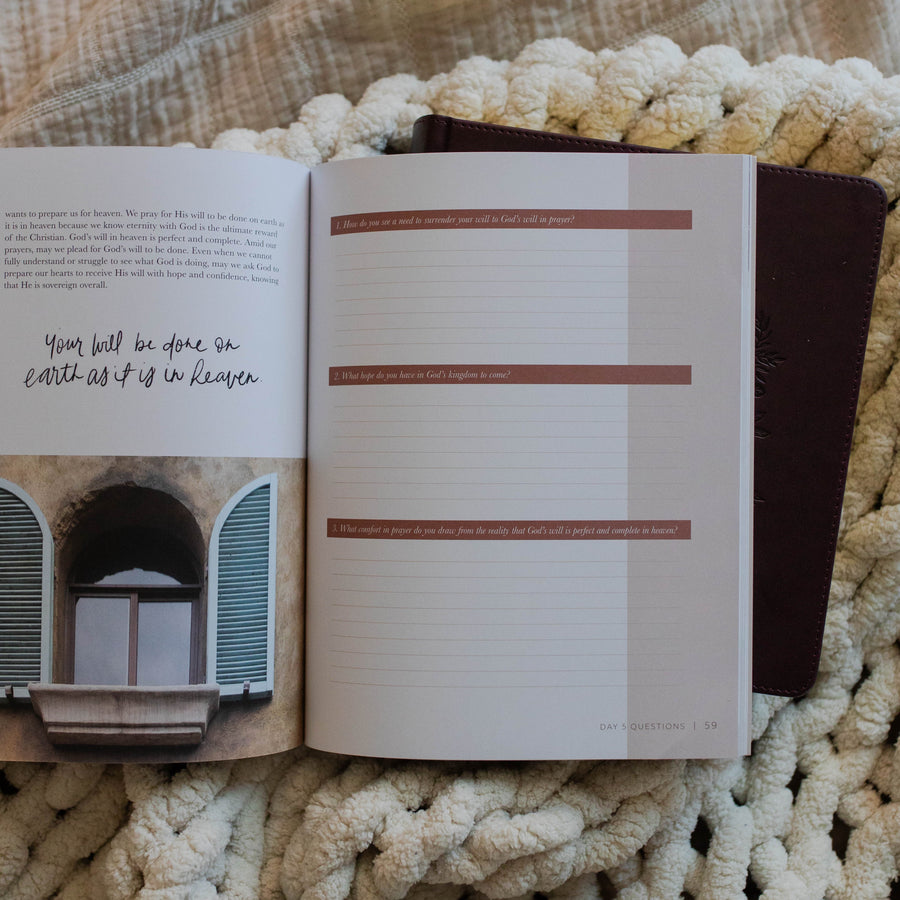 wants to prepare us for heaven. We pray for His will to be done on earth as
it is in heaven because we know eternity with God is the ultimate reward
of the Christian. God's will in heaven is perfect and complete. Amid our
prayers, may we plead for God's will to be done. Even when we cannot
fully understand or struggle to see what God is doing, may we ask God to
prepare our hearts to receive His will with hope and confidence, knowing
that He is sovereign overall.
your will be done on
earth as it is in heaven.
1. How do you see a need to surrender your will to God's will in prayer?
2. What hope do you have in God's kingdom to come?
3. What comfort in prayer do you draw from the reality that God's will is perfect and complete in heaven?
DAY 5 QUESTIONS | 59